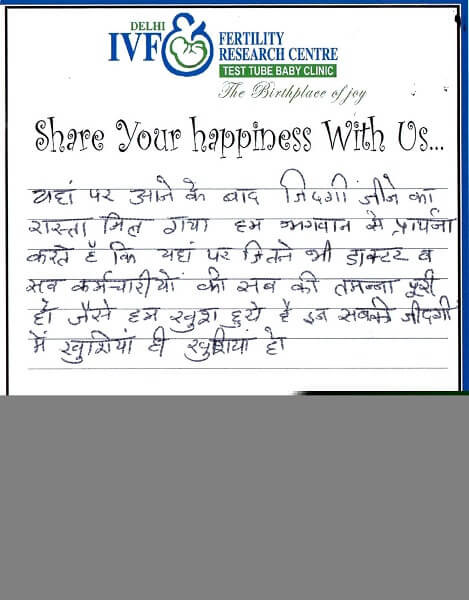 DELHI
IVF & FERTILITY
RESEARCH CENTRE
TEST TUBE BABY CLINIC
The Birthplace of joy
Share Your happiness With Us...
यहां पर आने के बाद जिदगी जीने का
रास्ता मिल गया हम भगवान से प्रार्थना
करते है कि यहां पर जितने भी डाक्टर व
सव कर्मचारीयों की सब की तमन्ना पूरी
हो जैसे हम खुश हुये है इन सबकी जीदगी
में खुशियां ही खुशियां हो